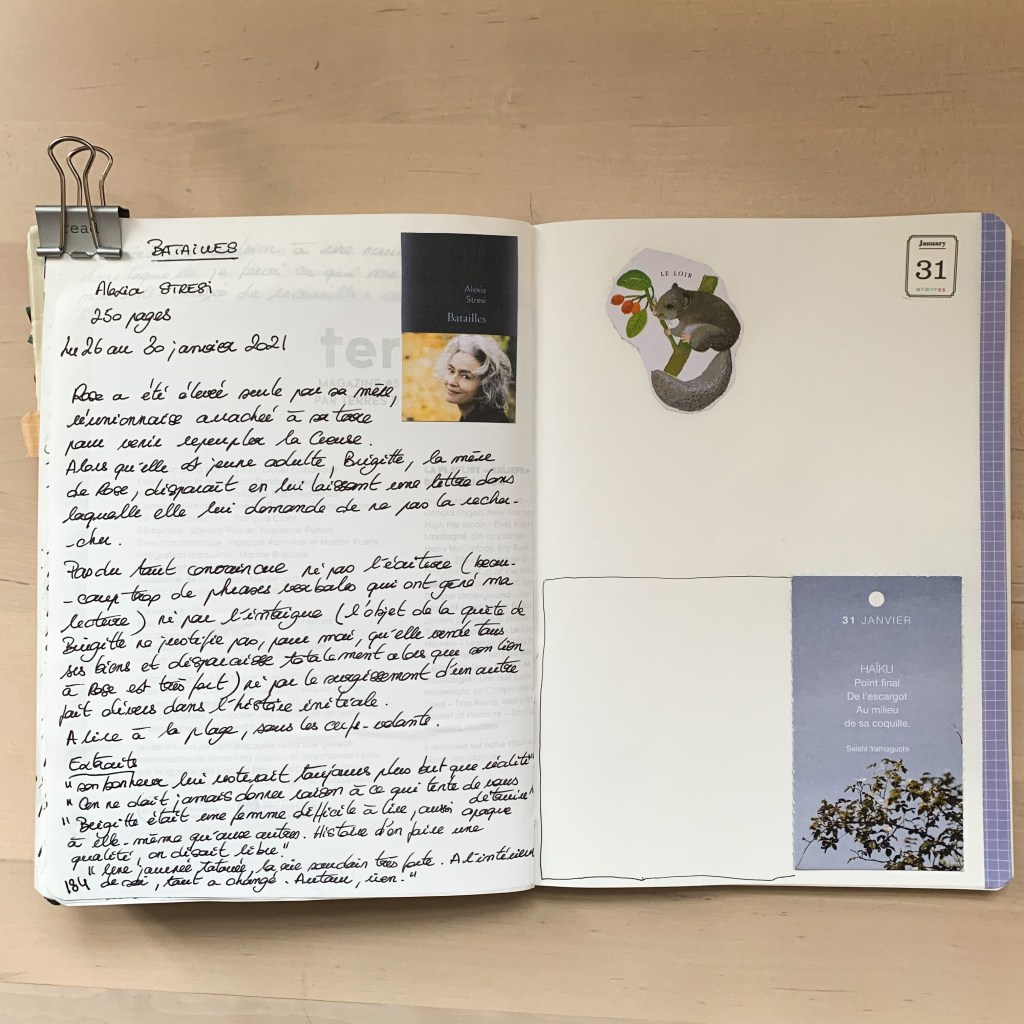 read
BATAILLES
Alexia STRESI
250 pages
Du 26 au 30 janvier 2021
Alexia
Stresi
Batailles
Rose a été élevée seule par sa mère,
réunionnaise arrachée à sa terre
pour venir repeupler la Creuse.
Alors qu'elle est jeune adulte, Brigitte, la mère
de Rose, disparaît en lui laissant une lettre dans
laquelle elle lui demande de ne pas la recher-
-cher.
Pas du tout convaincue ni par l'écriture (beau-
-coup trop de phrases verbales qui ont gêné ma
lecture) ni par l'intrigue (l'objet de la quête de
Brigitte ne justifie pas, pour moi, qu'elle vende tous
ses biens et disparaisse totalement alors que son lien
à Rose est très fort) ni par le surgissement d'un autre
fait divers dans l'histoire initiale.
A lire à la plage, sous les cerfs-volants.
Extraits
"son bonheur lui resterait toujours plus but que réalité"
"On ne doit jamais donner raison à ce qui tente de vous
détruire"
"Brigitte était une femme difficile à lire, aussi opaque
à elle-même qu'aux autres. Histoire d'en faire une
qualité, on disait libre"
"Une journée tatouée, la vie soudain très forte. A l'intérieur
de soi, tout a changé. Autour, rien."
184
LE LOIR
January
31
31 JANVIER
HAÏKU
Point final
De l'escargot
Au milieu
de sa coquille.
Seishi Yamaguchi